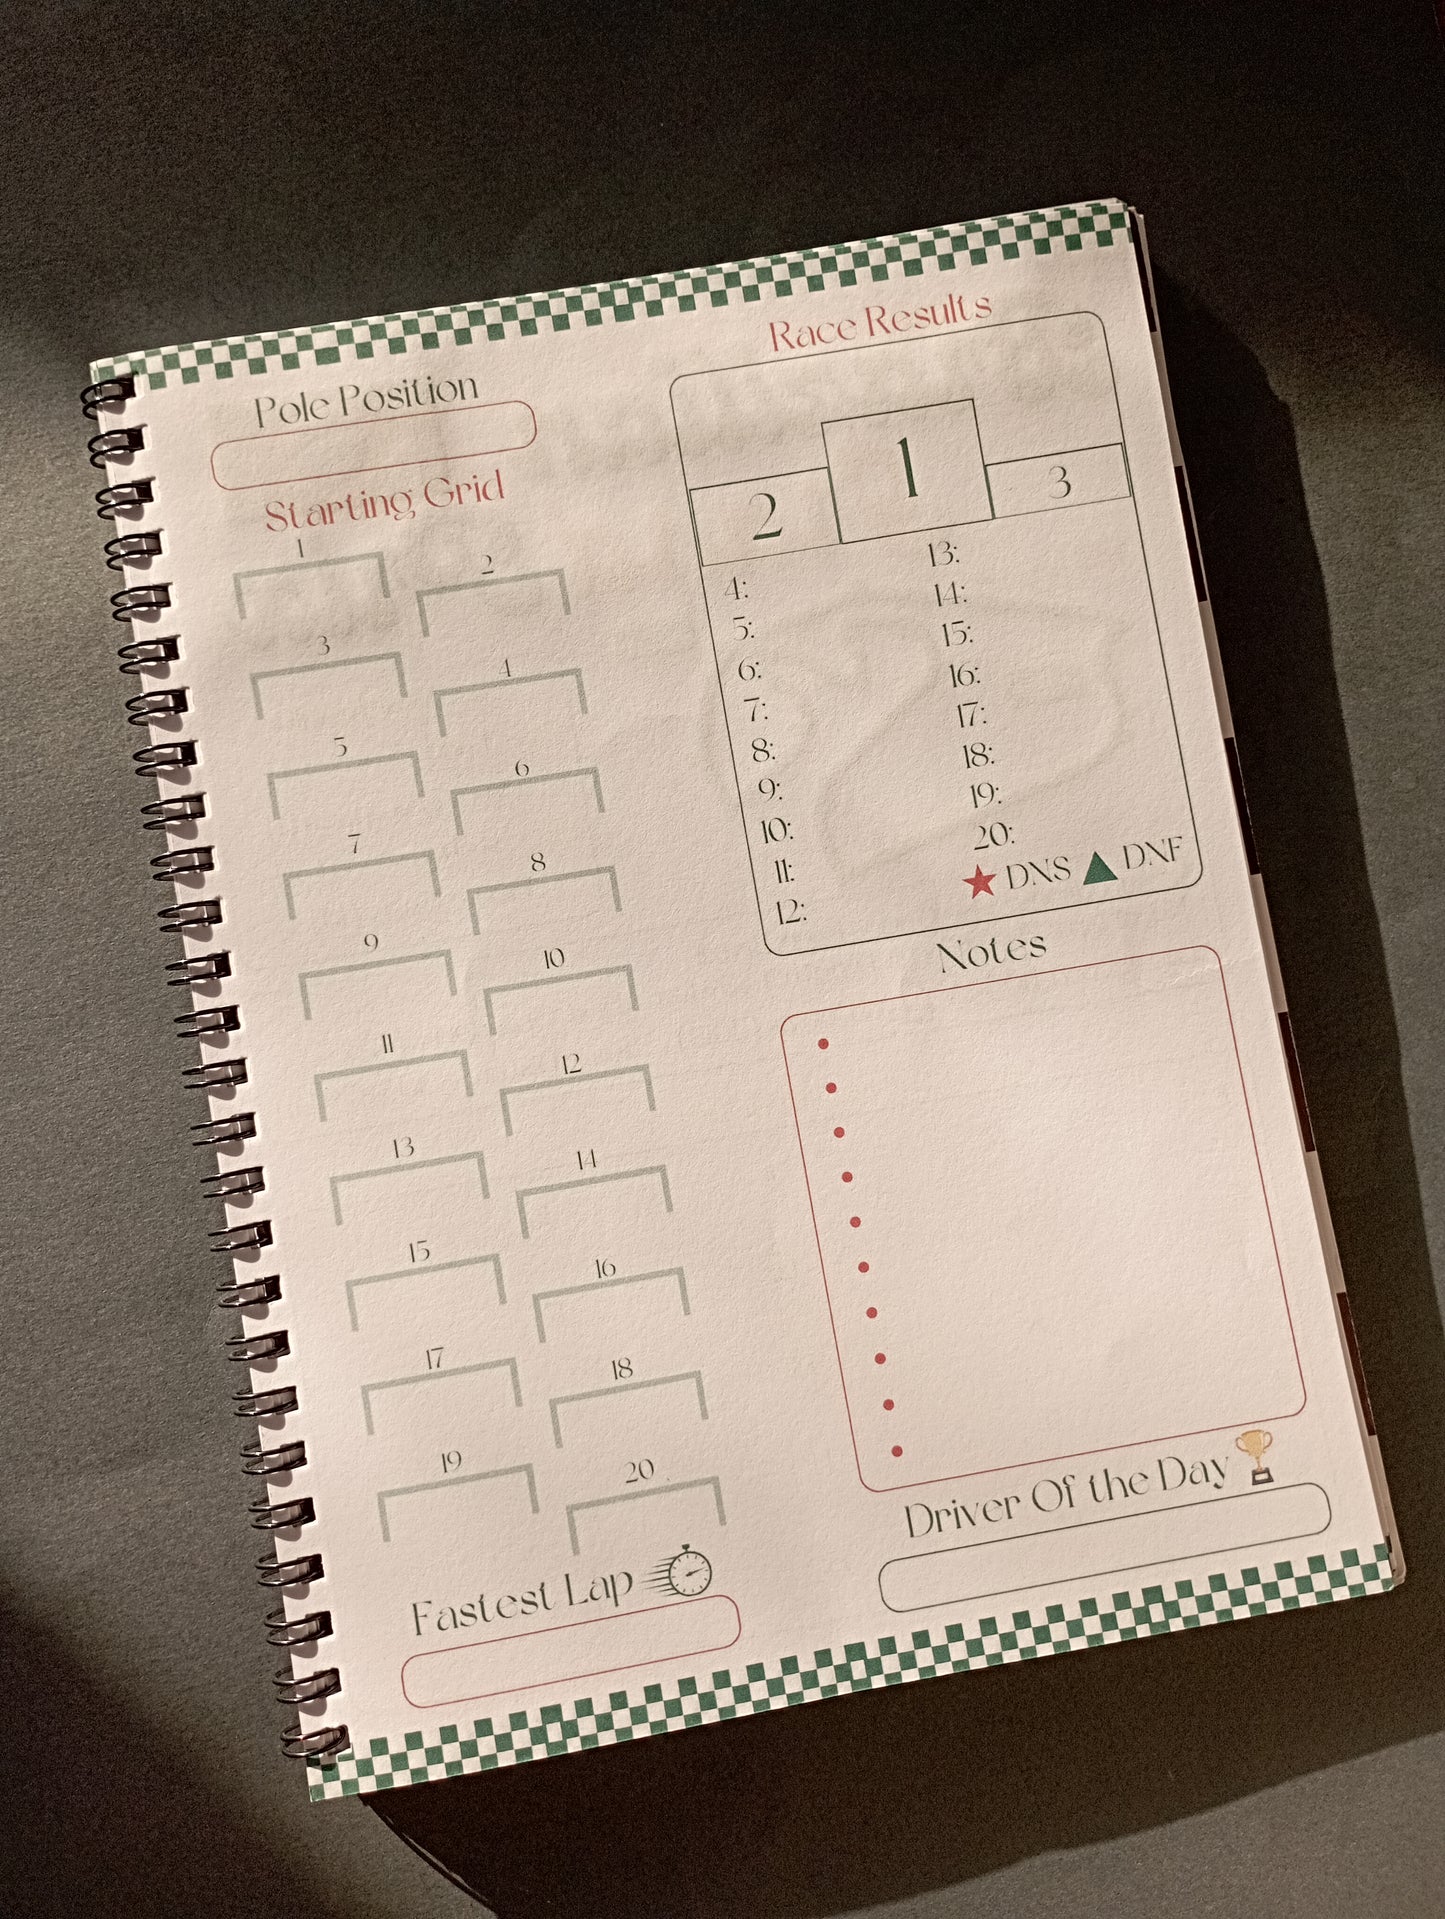 Pole Position
Starting Grid
1
2
3
4
5
6
7
8
9
10
11
12
13
14
15
16
17
18
19
20
Fastest Lap
Race Results
1
2
3
4:
5:
6:
7:
8:
9:
10:
11:
12:
13:
14:
15:
16:
17:
18:
19:
20:
DNS DNF
Notes
Driver Of the Day